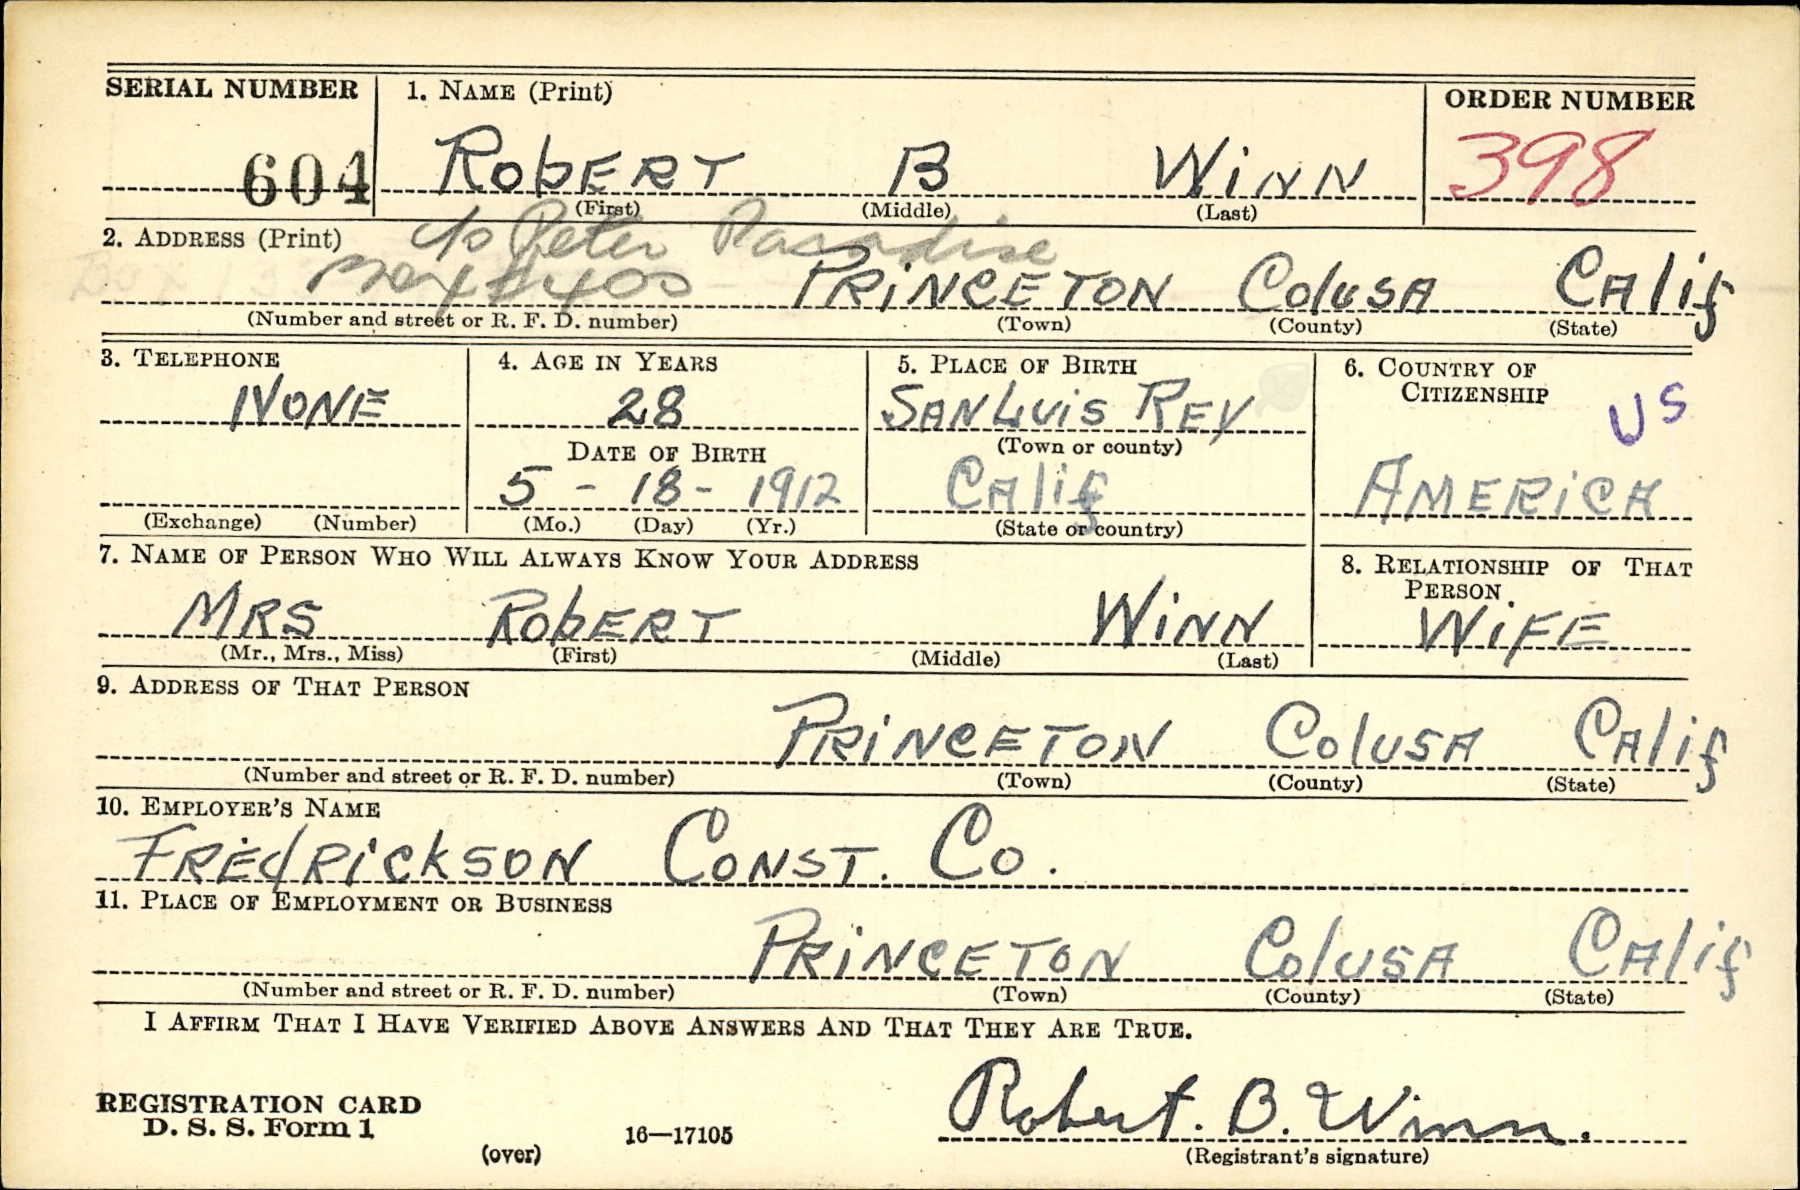 SERIAL NUMBER 1. NAME (Print) ORDER NUMBER
604 RobERT B WiNN 398
(First) (Middle) (Last)
2. ADDRESS (Print) c/o Peter Paradise
Box 133 PRiNCETON ColuSA CAlif
(Number and street or R. F. D. number) (Town) (County) (State)
3. TELEPHONE 4. AGE IN YEARS 5. PLACE OF BIRTH 6. COUNTRY OF
CITIZENSHIP
NONE 28 SAN LuiS REY US
DATE OF BIRTH (Town or county)
5 - 18 - 1912 CAlif AMERiCA
(Exchange) (Number) (Mo.) (Day) (Yr.) (State or country)
7. NAME OF PERSON WHO WILL ALWAYS KNOW YOUR ADDRESS 8. RELATIONSHIP OF THAT
PERSON
MRS RobERT WiNN WiFE
(Mr., Mrs., Miss) (First) (Middle) (Last)
9. ADDRESS OF THAT PERSON
PRiNCETON ColuSA CAlif
(Number and street or R. F. D. number) (Town) (County) (State)
10. EMPLOYER'S NAME
FREdRickSON CONST. Co.
11. PLACE OF EMPLOYMENT OR BUSINESS
PRiNCETON ColuSA CAlif
(Number and street or R. F. D. number) (Town) (County) (State)
I AFFIRM THAT I HAVE VERIFIED ABOVE ANSWERS AND THAT THEY ARE TRUE.
REGISTRATION CARD
D. S. S. Form 1 Robert. B. Winn.
(over) 16—17105 (Registrant's signature)